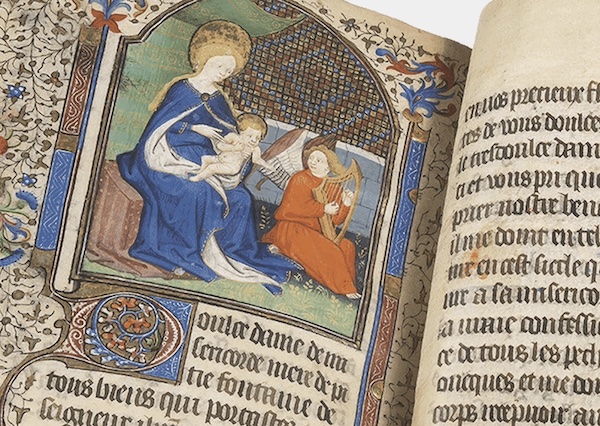 Doulce dame de mi
sericorde mere de pi
tie fontaine de
tous biens qui portastes
seigneur
precieux
de vous doulce
tresdoulce dam
et vous pri que
prier nostre ben
il me doint en tel
en cest siecle
a sa misericor
vraie confessi
ce de tous les pech
oncques et me do
corps recepuoir au